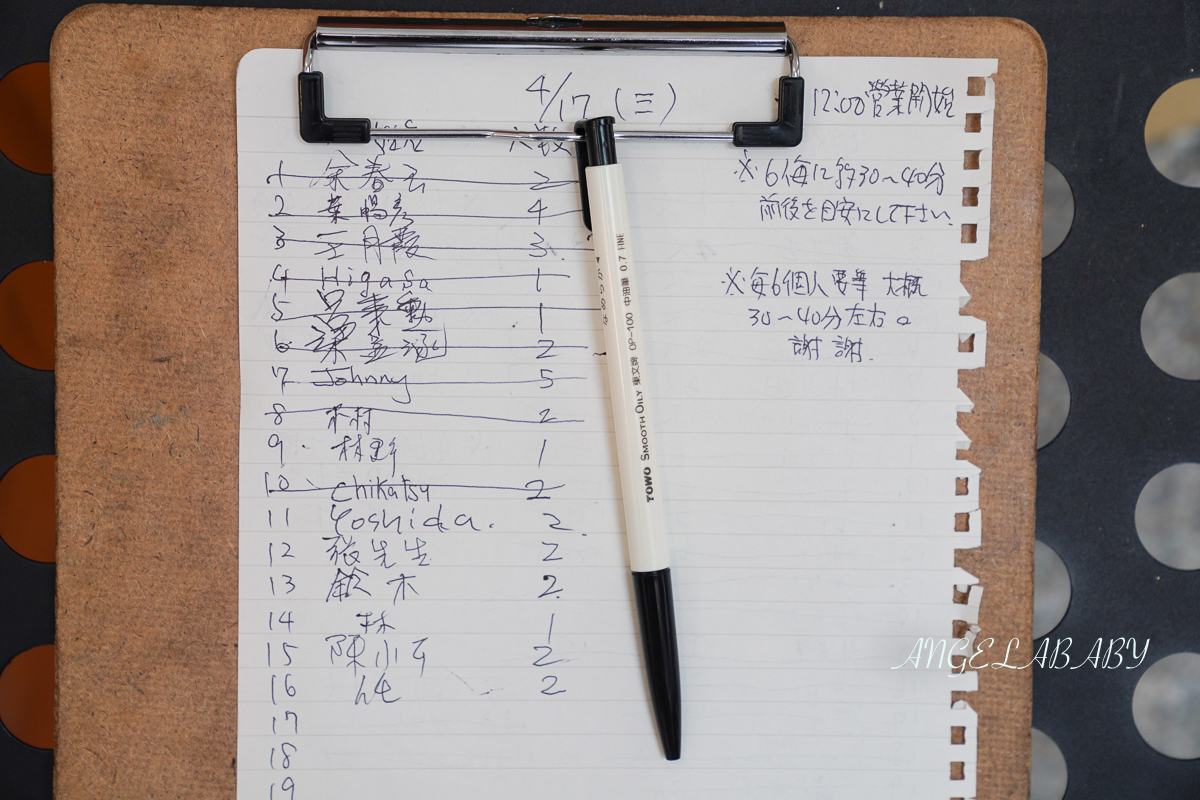 4/17 (三)
12:00 営業開始
人数
※ 6人毎に約30〜40分
前後を目安にして下さい。
※每6個人要等 大概
30〜40分左右。
謝謝.
1 余春 2
2 葉暢 4
3 王月霞 3
4 Higasa 1
5 1
6 梁孟涵 2
7 Johnny 5
8 木村 2
9 林野 1
10 Chikatsu 2
11 Yoshida. 2
12 張先生 2
13 鈴木 2
14 林 1
15 陳小 2
16 2
17
18
19
TOWO SMOOTH OILY 東文牌 OP-100 中油筆 0.7 FINE
ANGELABABY